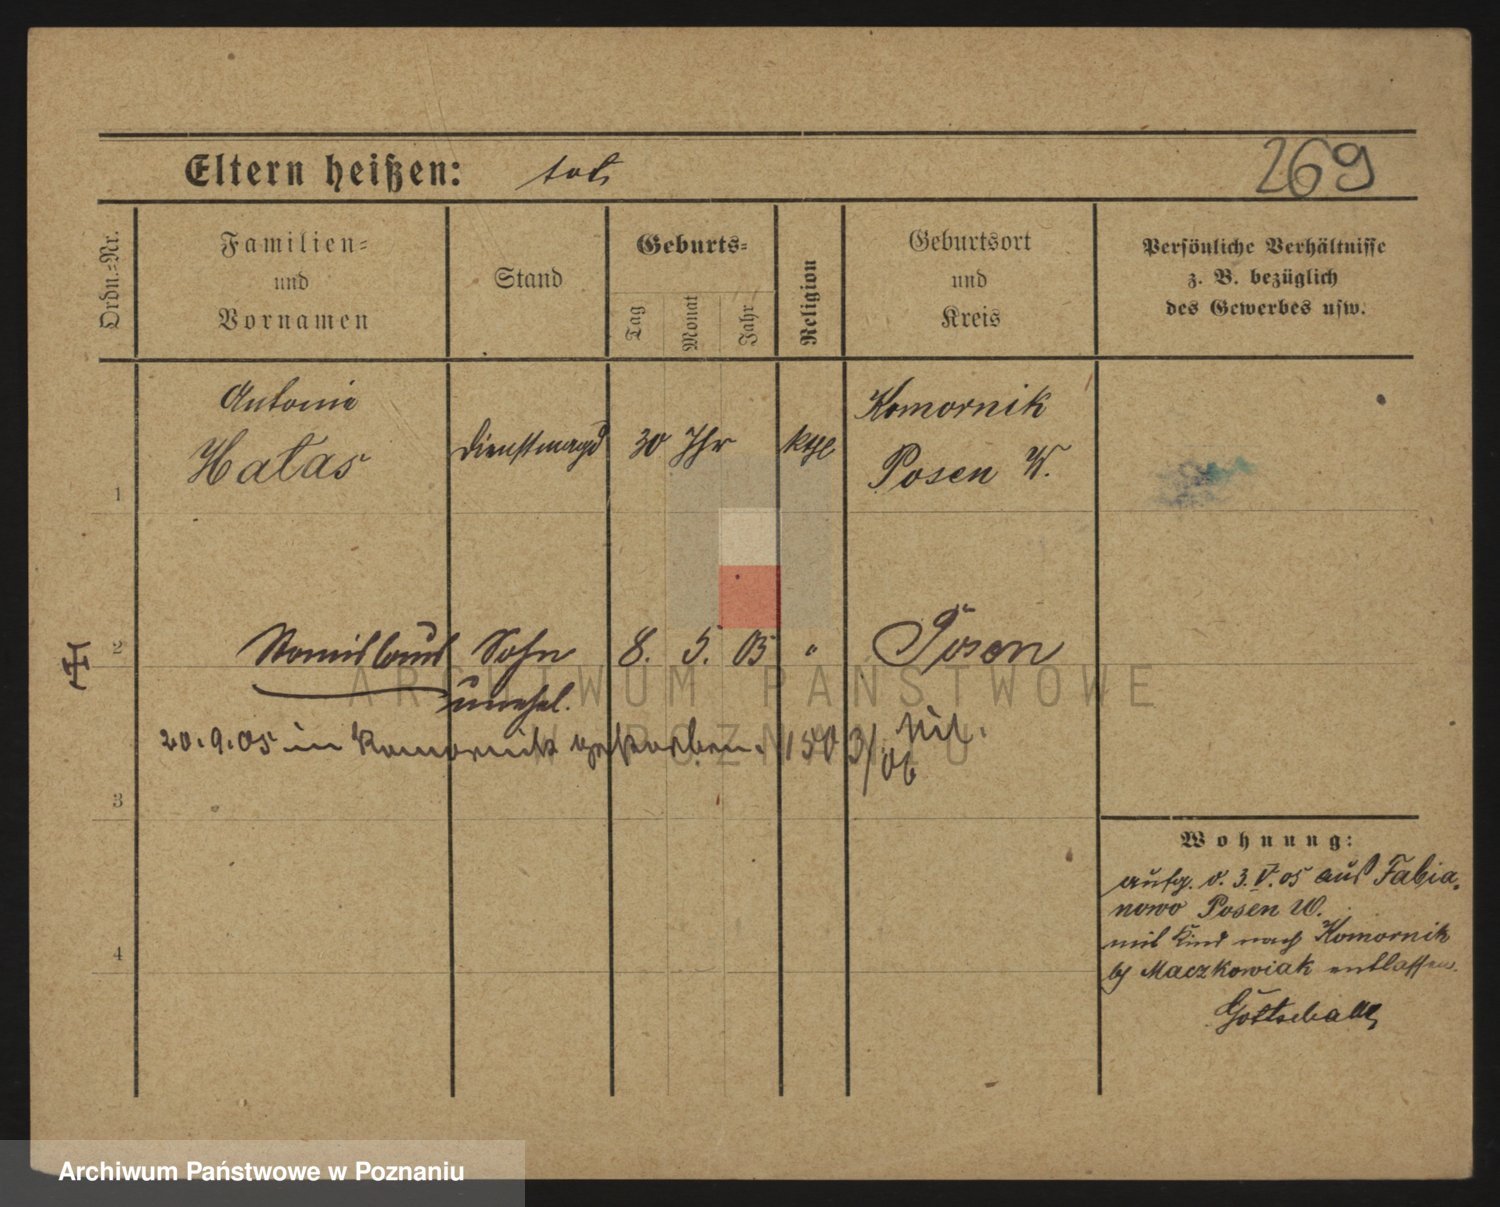 Eltern heißen: tot,
269
Ordn.-Nr.
Familien-
und
Vornamen
Stand
Geburts-
Tag
Monat
Jahr
Religion
Geburtsort
und
Kreis
Persönliche Verhältnisse
z. B. bezüglich
des Gewerbes usw.
1
Antonie
Hatas
Dienstmagd
30 Jhr
kth
Komornik
Posen W.
2
Stanislaus
Sohn
unehel.
8. 5. 05
"
Posen
20.9.05 in Komornik gestorben. 1503/06
3
4
Wohnung:
aufg. d. 3.V.05 aus Fabia-
nowo Posen W.
mit Kind nach Komornik
b/ Maczkowiak entlassen.
Gottschalk
ARCHIWUM PAŃSTWOWE
W POZNANIU
Archiwum Państwowe w Poznaniu